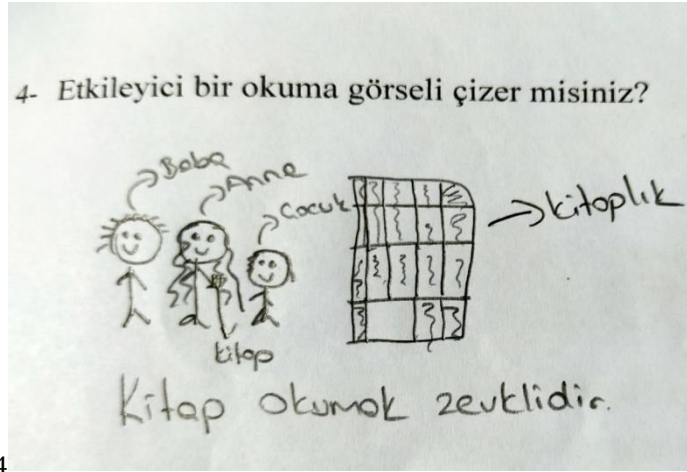 4- Etkileyici bir okuma görseli çizer misiniz?
Baba
Anne
Çocuk
kitaplık
kitap
Kitap okumak zevklidir.
4